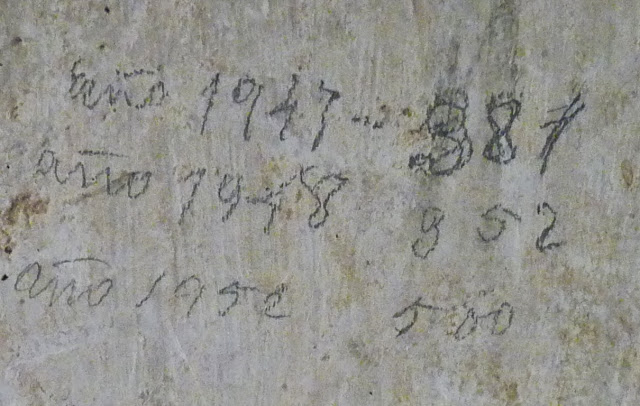 año 1947 - 887
año 1948 952
año 1952 500